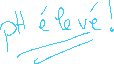 pH élevé !